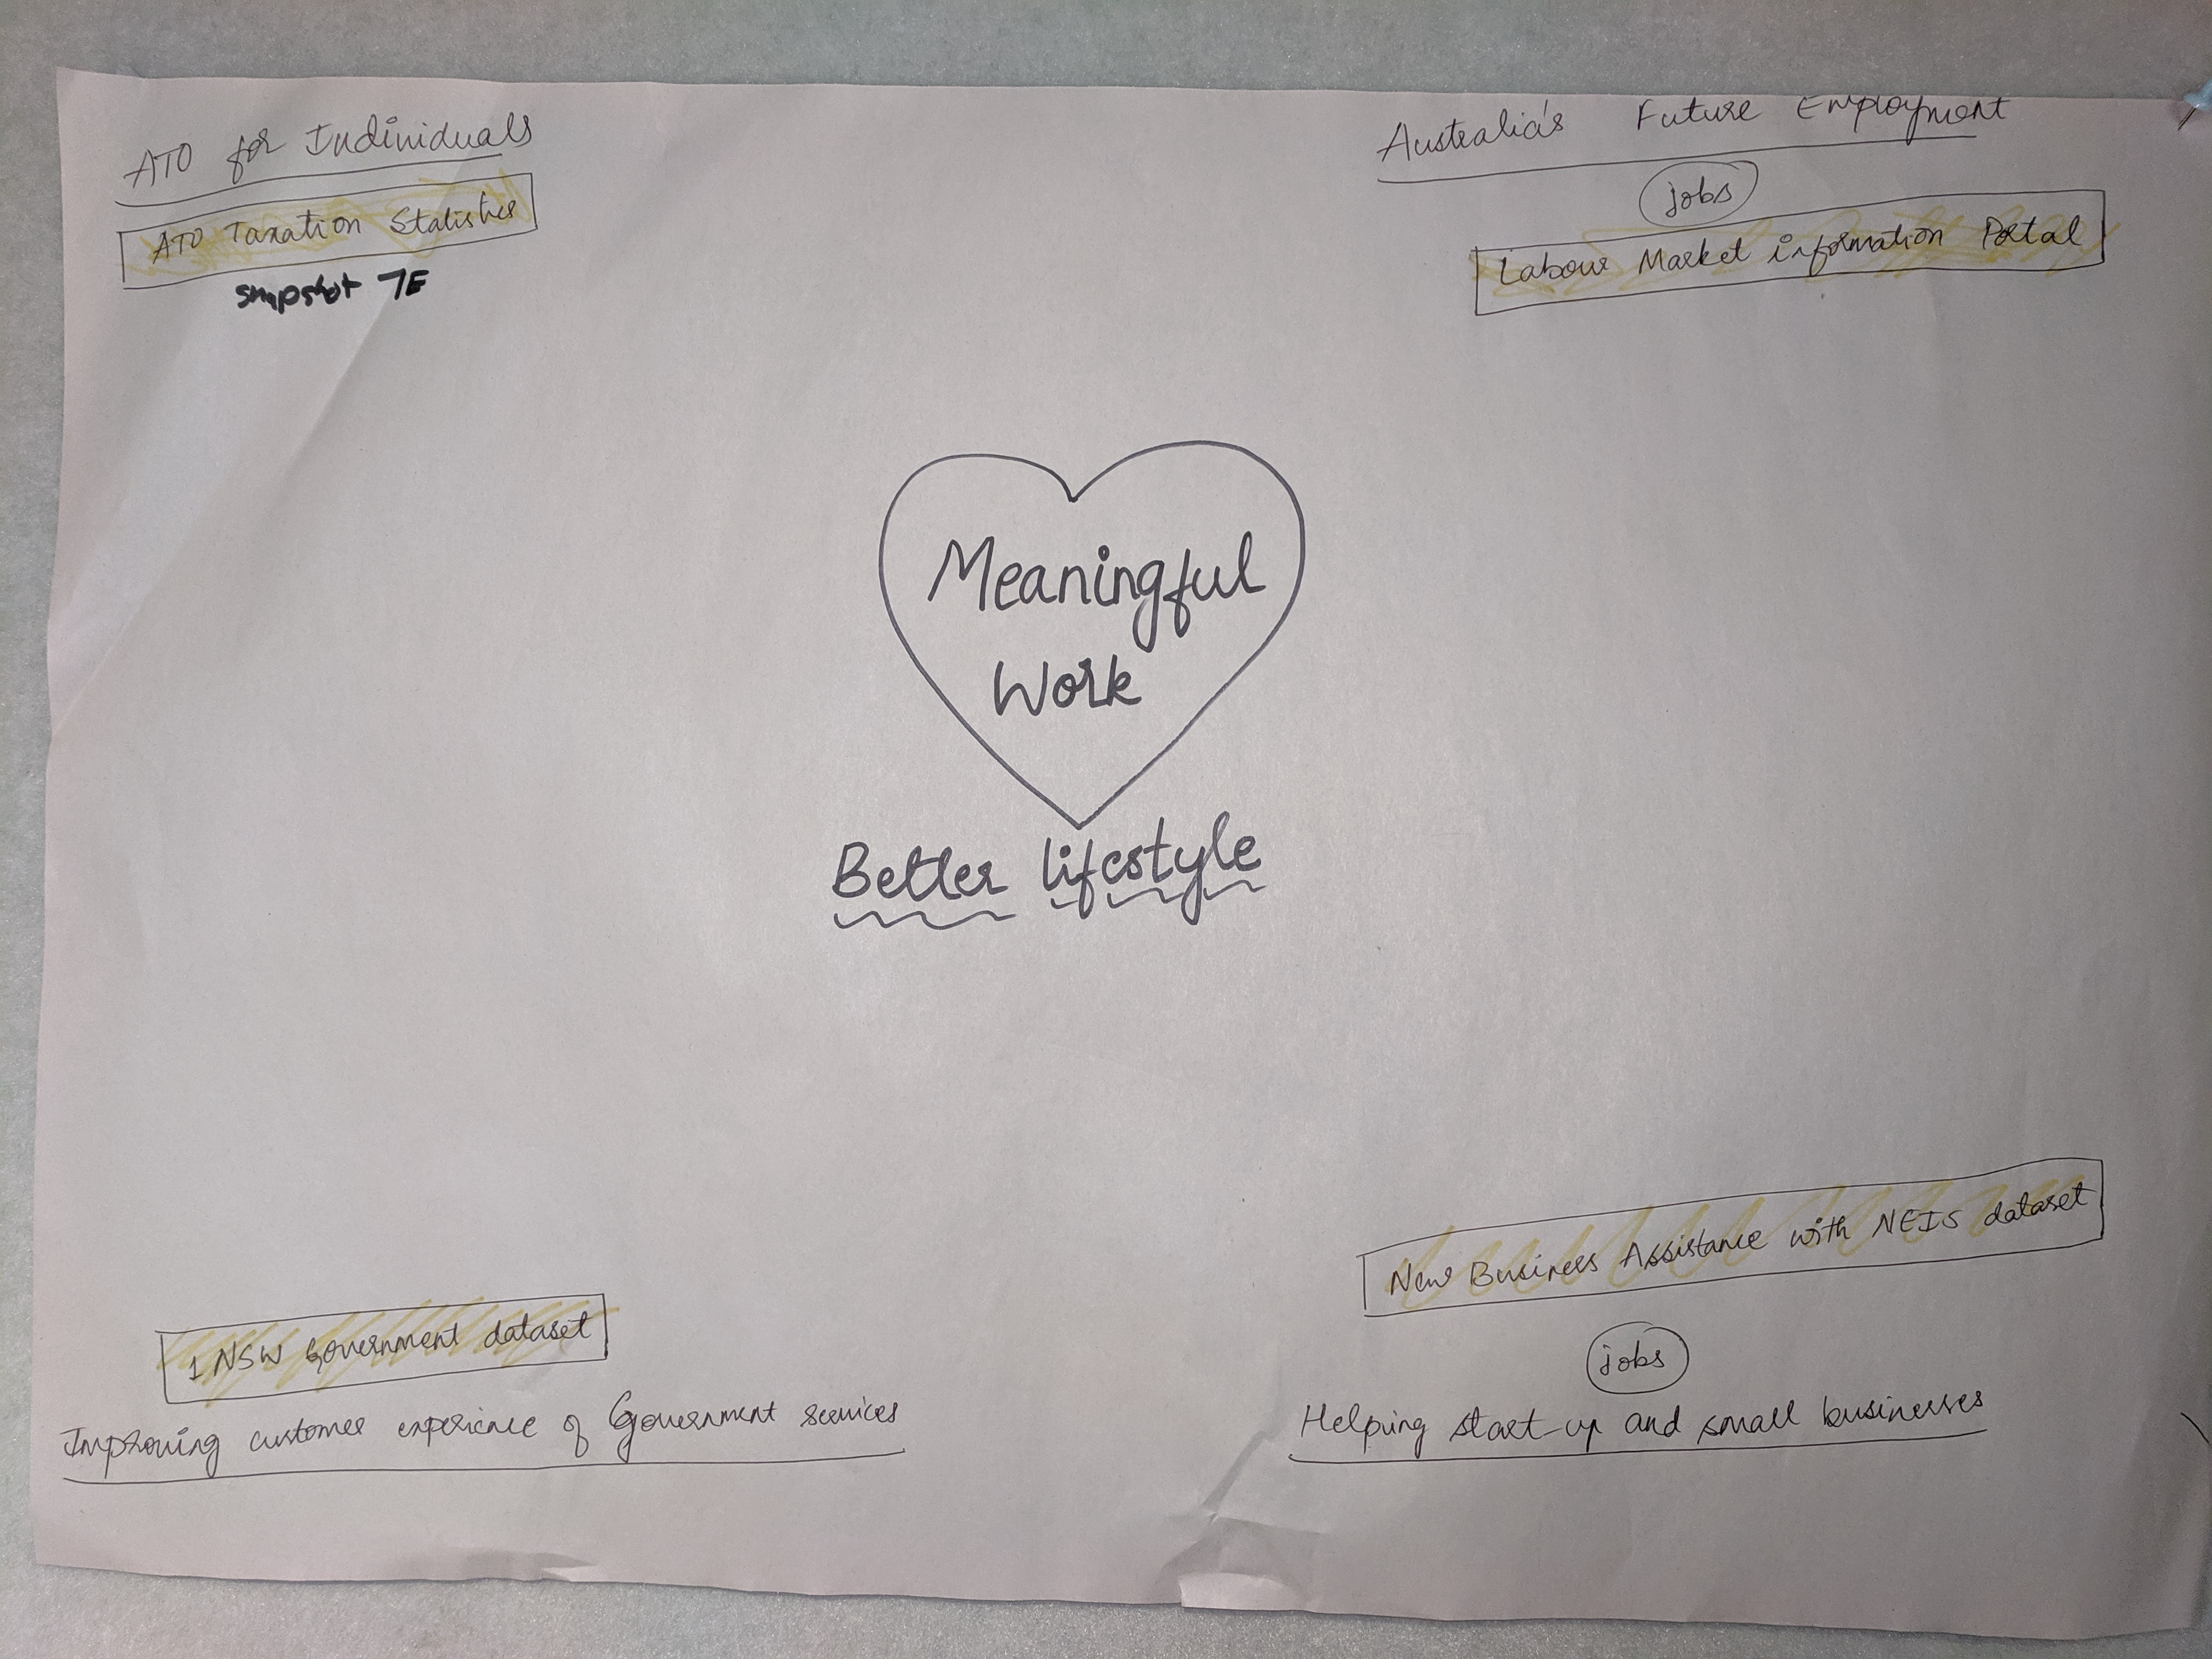 ATO for Individuals
ATO Taxation Statistics
snapshot 7E
Australia's Future Employment
jobs
Labour Market information Portal
Meaningful
Work
Better lifestyle
1 NSW Government dataset
Improving customer experience of Government services
New Business Assistance with NEIS dataset
jobs
Helping start-up and small businesses